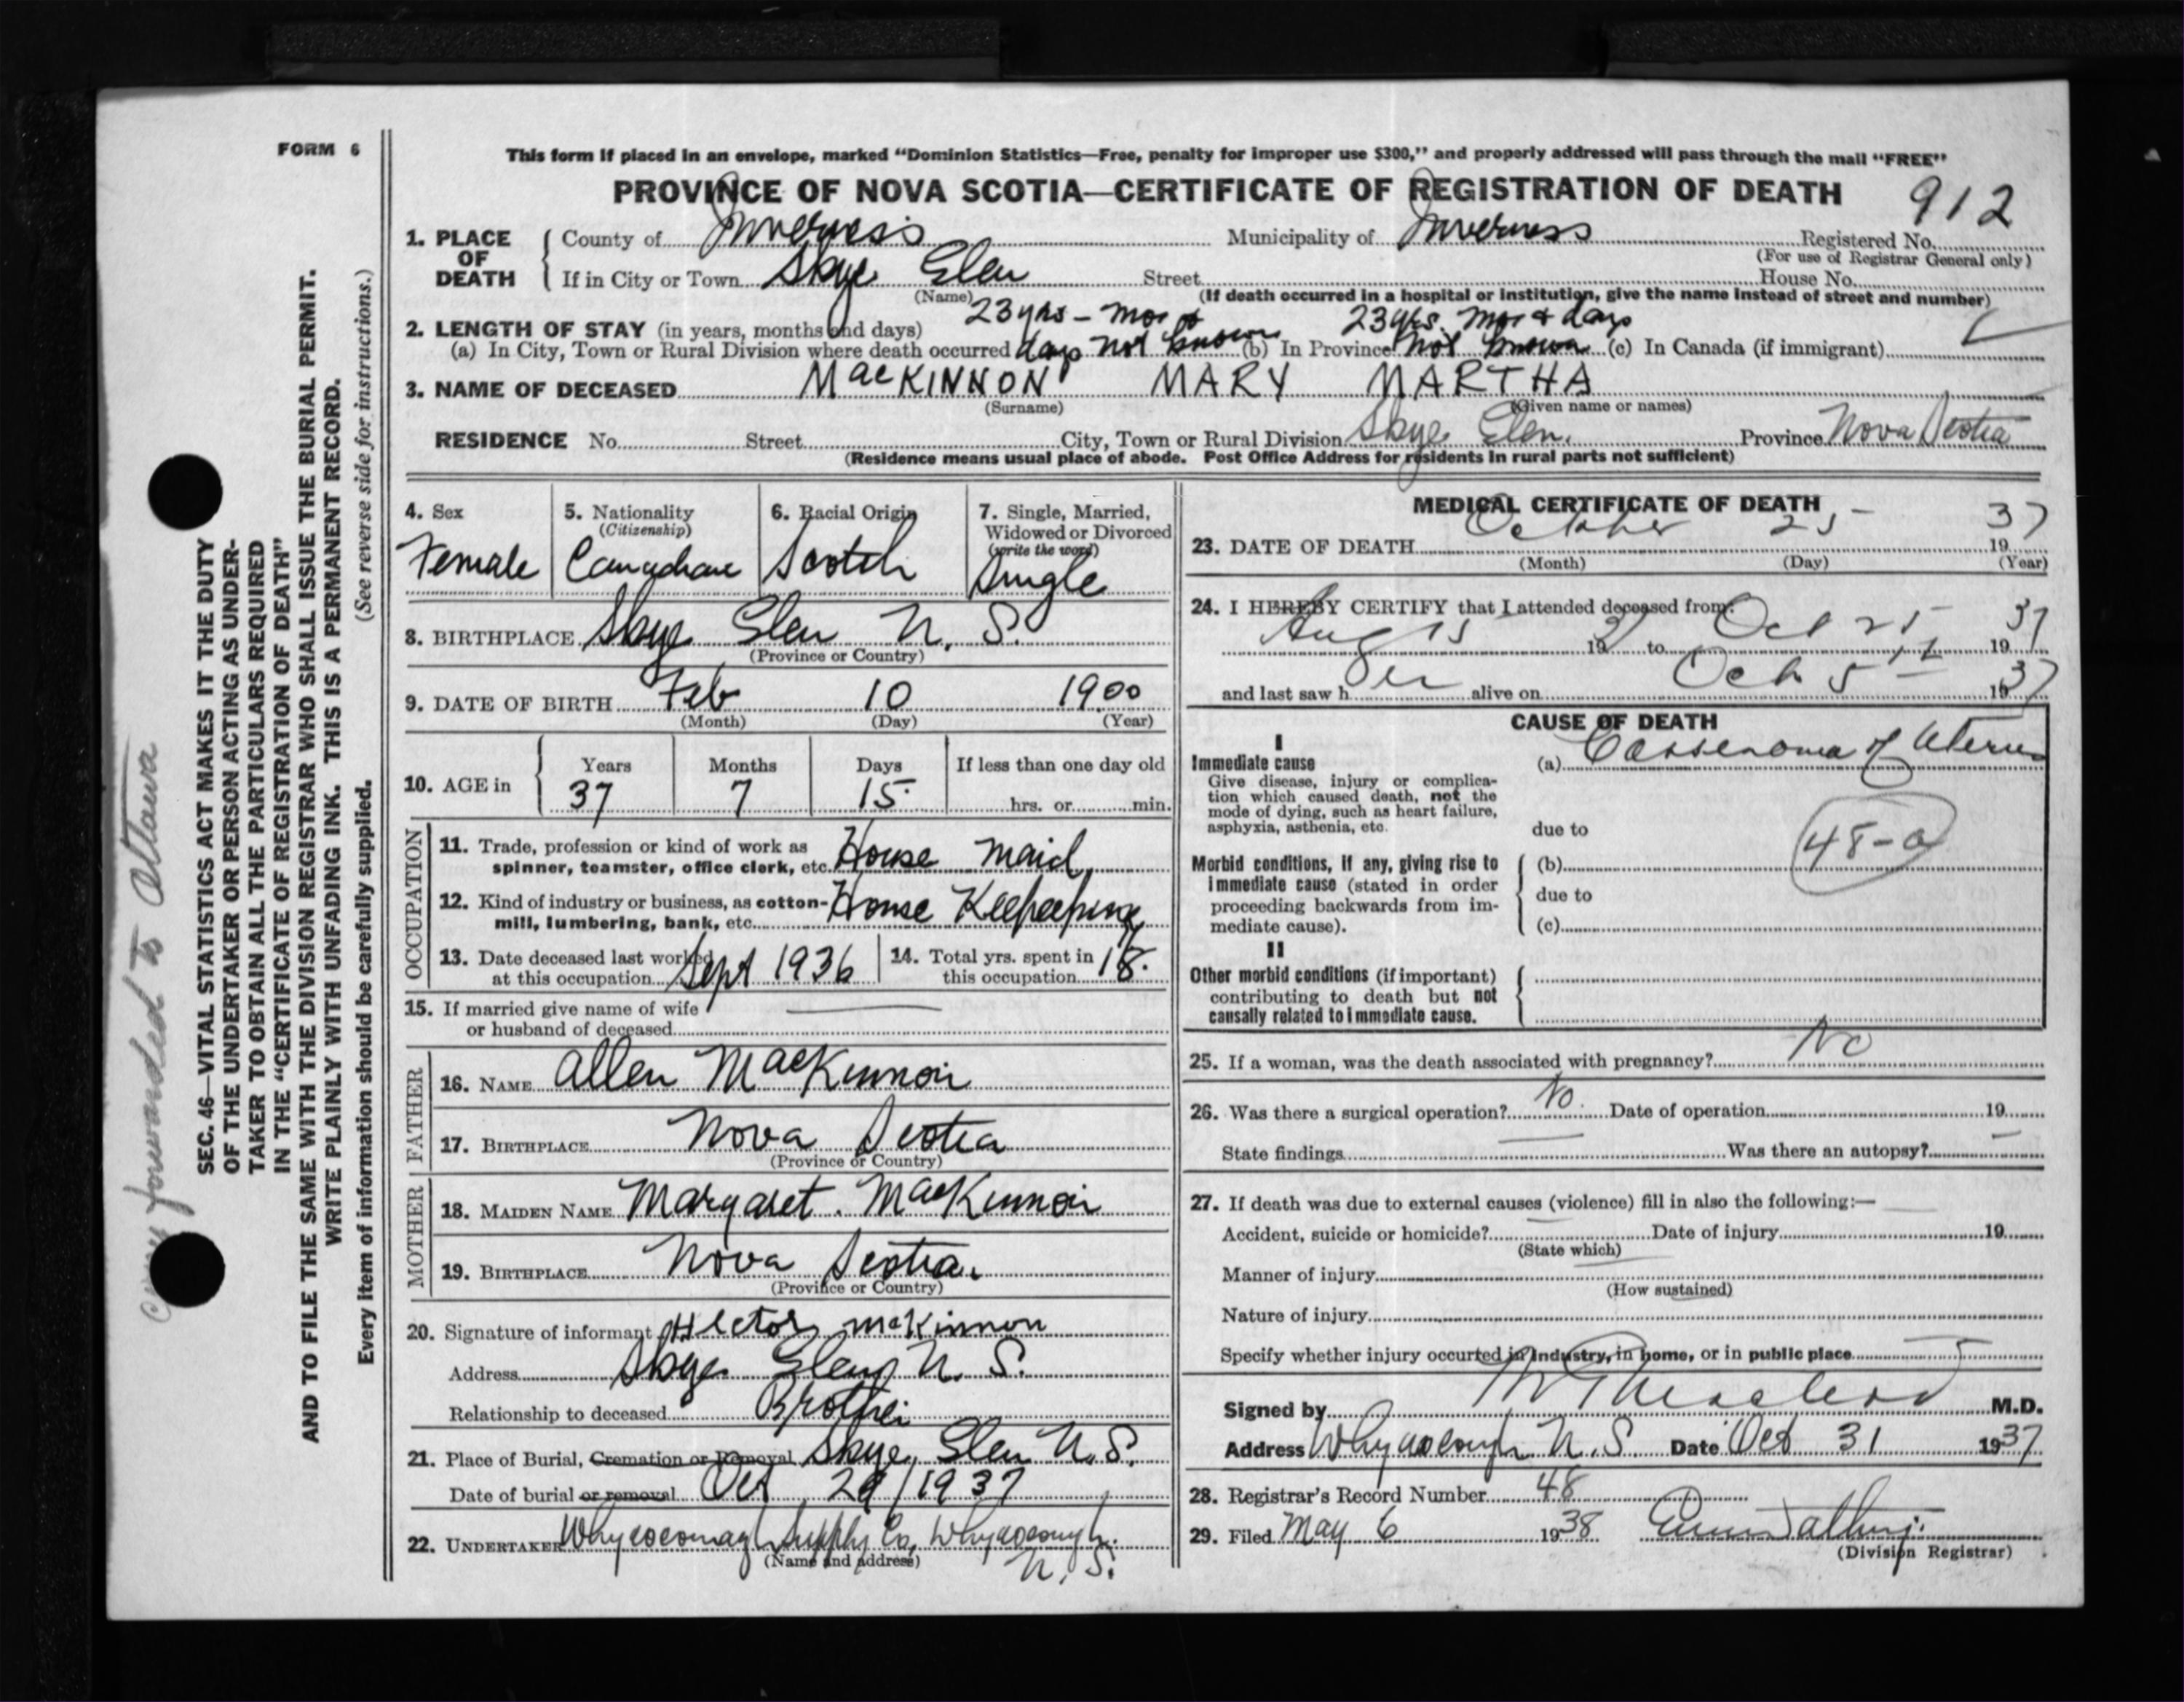 FORM 6
This form if placed in an envelope, marked "Dominion Statistics—Free, penalty for improper use $300," and properly addressed will pass through the mail "FREE"
PROVINCE OF NOVA SCOTIA—CERTIFICATE OF REGISTRATION OF DEATH 912
1. PLACE OF DEATH County of Inverness Municipality of Inverness Registered No.
(For use of Registrar General only)
If in City or Town Skye Glen Street House No.
(Name) (If death occurred in a hospital or institution, give the name instead of street and number)
2. LENGTH OF STAY (in years, months and days) 23 yrs - mos & 23 yrs. mos & days
(a) In City, Town or Rural Division where death occurred days not known (b) In Province not known (c) In Canada (if immigrant)
3. NAME OF DECEASED MacKINNON MARY MARTHA
(Surname) (Given name or names)
RESIDENCE No. Street City, Town or Rural Division Skye Glen. Province Nova Scotia
(Residence means usual place of abode. Post Office Address for residents in rural parts not sufficient)
4. Sex Female
5. Nationality (Citizenship) Canadian
6. Racial Origin Scotch
7. Single, Married, Widowed or Divorced (write the word) Single
8. BIRTHPLACE Skye Glen N. S.
(Province or Country)
9. DATE OF BIRTH Feb 10 1900
(Month) (Day) (Year)
10. AGE in Years Months Days If less than one day old
37 7 15 hrs. or min.
OCCUPATION
11. Trade, profession or kind of work as spinner, teamster, office clerk, etc. House maid
12. Kind of industry or business, as cotton-mill, lumbering, bank, etc. House Keepeeping
13. Date deceased last worked at this occupation Sept 1936
14. Total yrs. spent in this occupation 18.
15. If married give name of wife or husband of deceased
FATHER
16. NAME Allen MacKinnon
17. BIRTHPLACE Nova Scotia
(Province or Country)
MOTHER
18. MAIDEN NAME Margaret. MacKinnon
19. BIRTHPLACE Nova Scotia.
(Province or Country)
20. Signature of informant Hector McKinnon
Address Skye Glen N. S.
Relationship to deceased Brother
21. Place of Burial, Cremation or Removal Skye Glen N.S.
Date of burial or removal Oct 29/1937
22. UNDERTAKER Whycocomagh Supply Co, Whycocomagh.
(Name and address) N. S.
MEDICAL CERTIFICATE OF DEATH
23. DATE OF DEATH October 25 1937
(Month) (Day) (Year)
24. I HEREBY CERTIFY that I attended deceased from:
Aug 15 1937 to Oct 25 1937
and last saw her alive on Oct 5th 1937
CAUSE OF DEATH
I
Immediate cause (a) Carsenoma of Uterus
Give disease, injury or complication which caused death, not the mode of dying, such as heart failure, asphyxia, asthenia, etc.
due to 48-a
Morbid conditions, if any, giving rise to immediate cause (stated in order proceeding backwards from immediate cause). (b)
due to
(c)
II
Other morbid conditions (if important) contributing to death but not causally related to immediate cause.
25. If a woman, was the death associated with pregnancy? No
26. Was there a surgical operation? No. Date of operation 19
State findings Was there an autopsy?
27. If death was due to external causes (violence) fill in also the following:—
Accident, suicide or homicide? Date of injury 19
(State which)
Manner of injury
(How sustained)
Nature of injury
Specify whether injury occurred in industry, in home, or in public place
Signed by Macleod M.D.
Address Whycocomagh N.S. Date Oct 31 1937
28. Registrar's Record Number 48
29. Filed May 6 1938
(Division Registrar)
SEC. 46—VITAL STATISTICS ACT MAKES IT THE DUTY
OF THE UNDERTAKER OR PERSON ACTING AS UNDER-
TAKER TO OBTAIN ALL THE PARTICULARS REQUIRED
IN THE "CERTIFICATE OF REGISTRATION OF DEATH"
AND TO FILE THE SAME WITH THE DIVISION REGISTRAR WHO SHALL ISSUE THE BURIAL PERMIT.
WRITE PLAINLY WITH UNFADING INK. THIS IS A PERMANENT RECORD.
Every item of information should be carefully supplied. (See reverse side for instructions.)
Copy forwarded to Ottawa